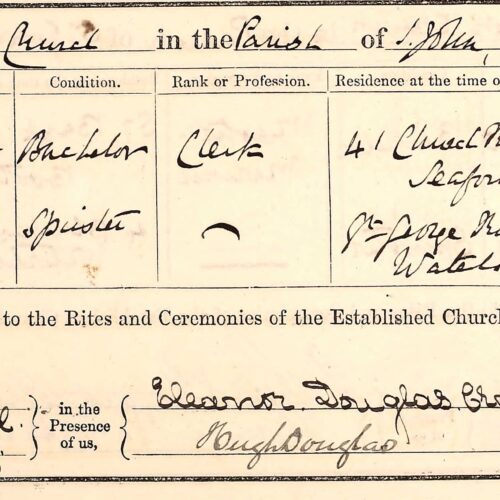 Church in the Parish of S. John,
Condition. Rank or Profession. Residence at the time of
Bachelor Clerk 41 Church
Seafor
Spinster George
Waterlo
to the Rites and Ceremonies of the Established Church
Eleanor Douglas Cro
in the
Presence
of us,
Hugh Douglas